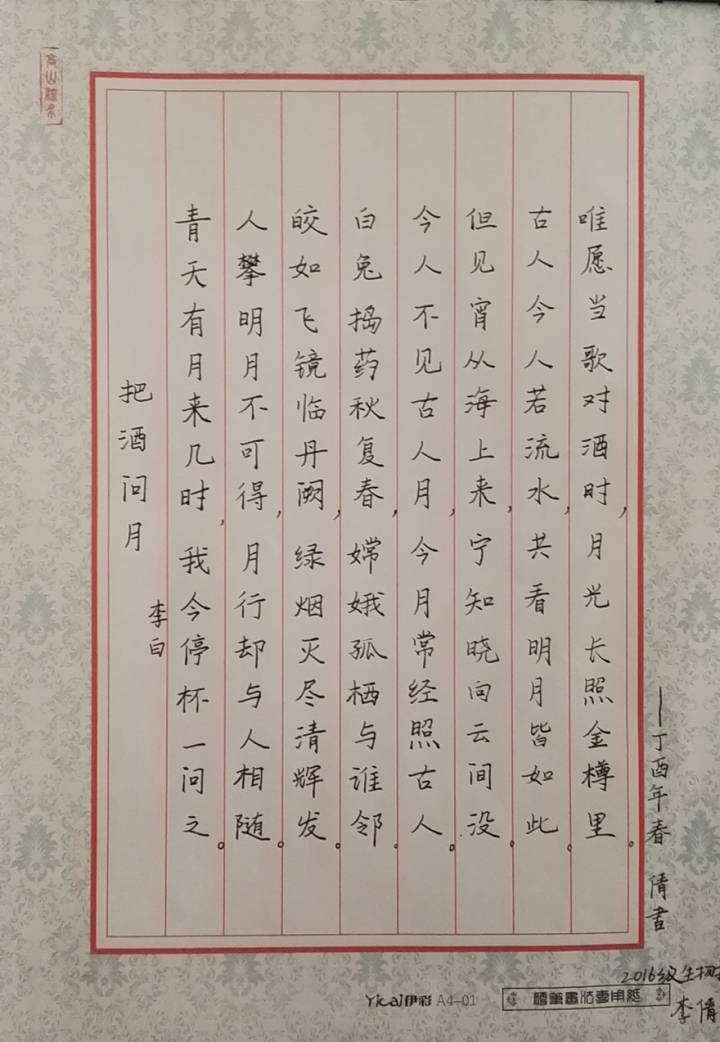 把酒问月
李白
青天有月来几时,我今停杯一问之。
人攀明月不可得,月行却与人相随。
皎如飞镜临丹阙,绿烟灭尽清辉发。
白兔捣药秋复春,嫦娥孤栖与谁邻。
今人不见古人月,今月常经照古人。
但见宵从海上来,宁知晓向云间没。
古人今人若流水,共看明月皆如此。
唯愿当歌对酒时,月光长照金樽里。
——丁酉年春 倩书
2016级生物
李倩
Yicai伊彩 A4-01